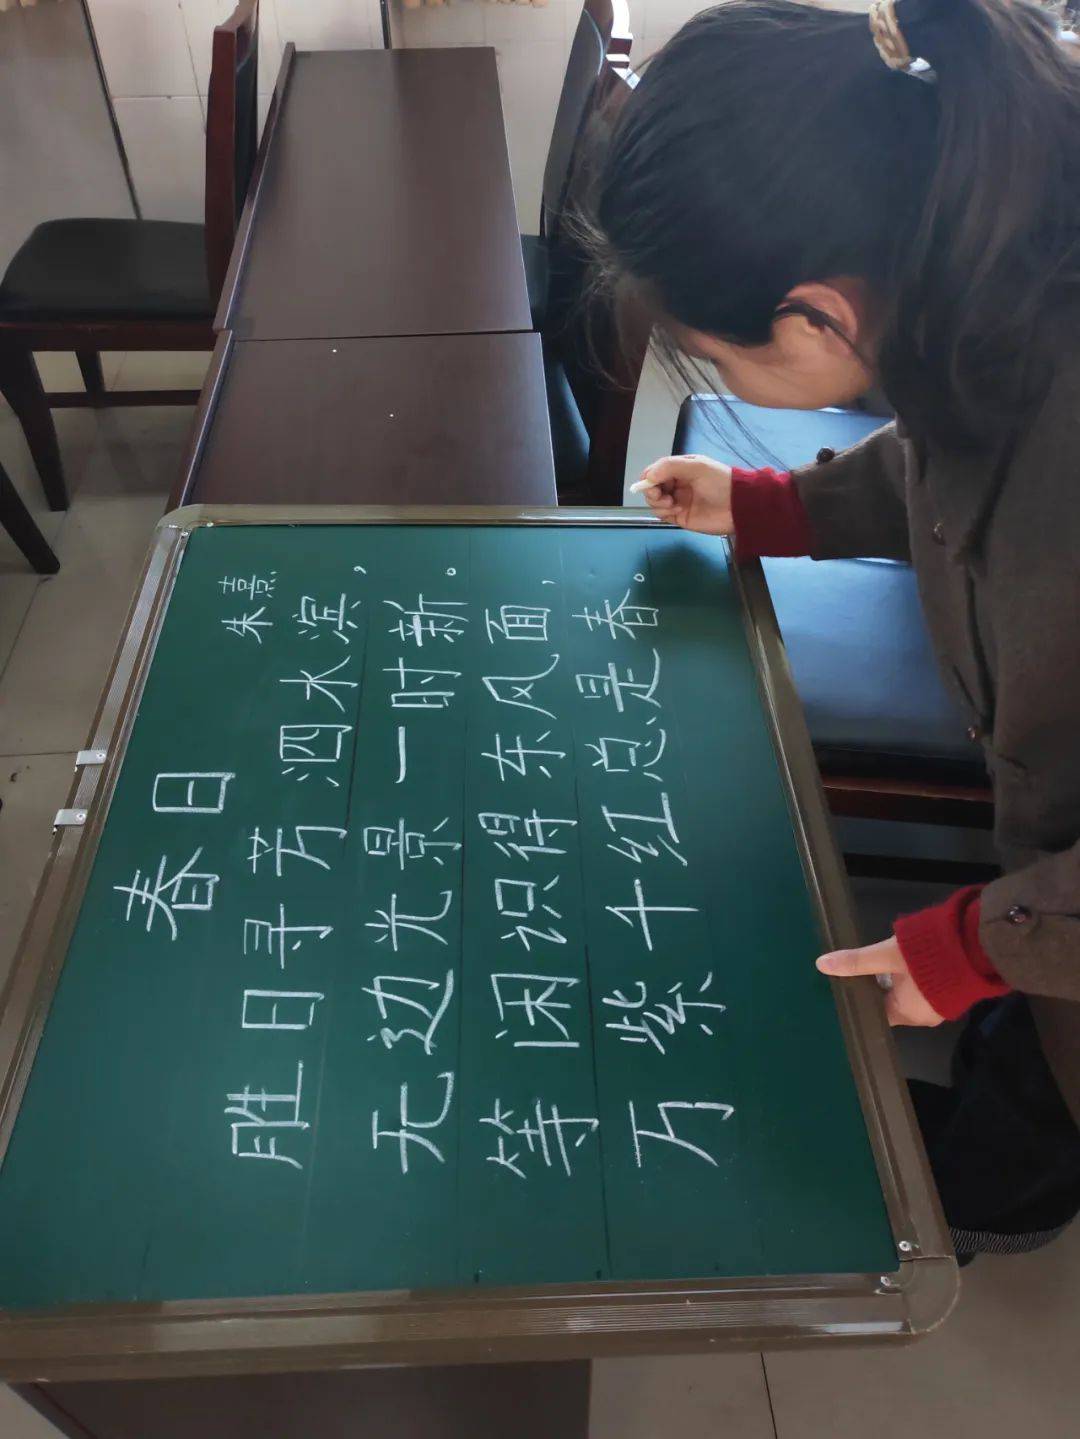 春日
朱熹
胜日寻芳泗水滨，
无边光景一时新。
等闲识得东风面，
万紫千红总是春。